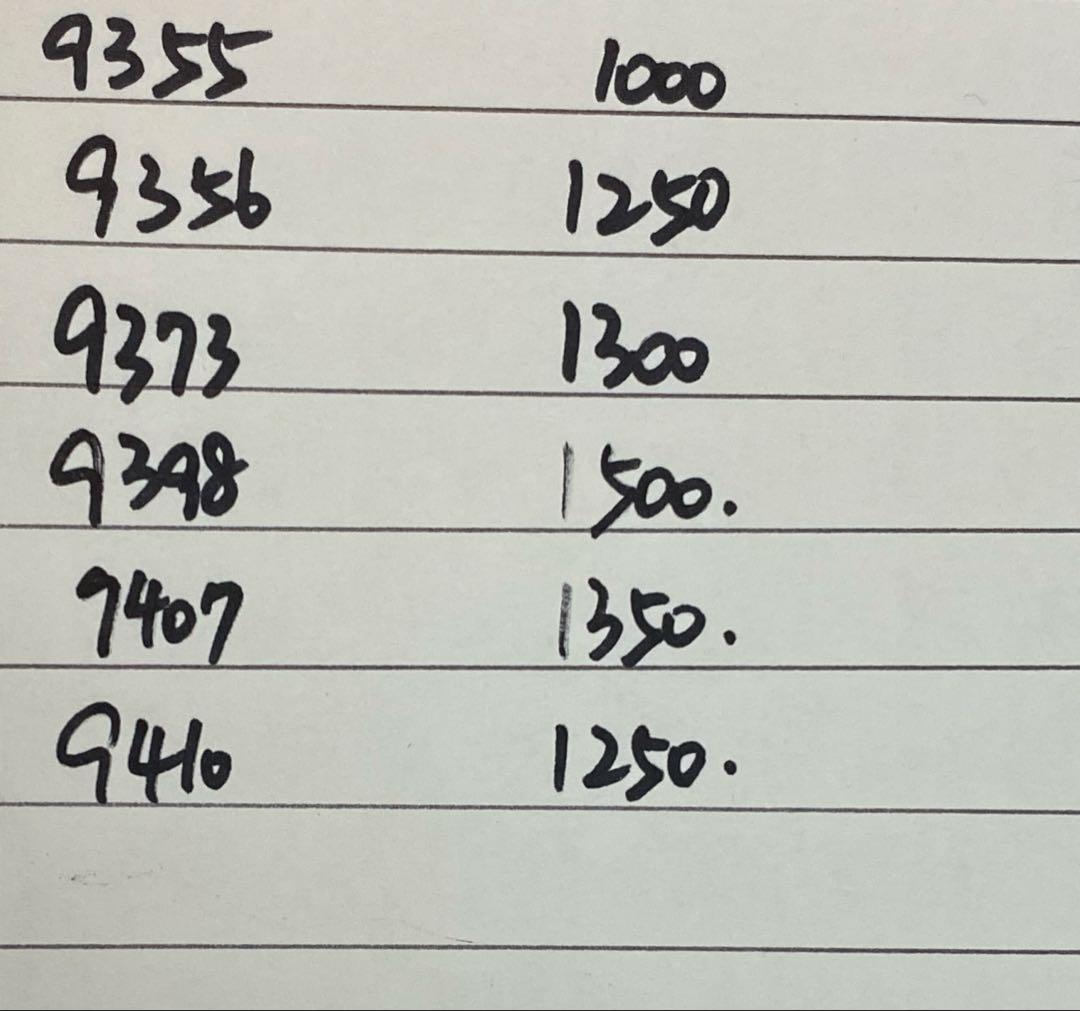 9355 1000
9356 1250
9373 1300
9398 1500.
9407 1350.
9410 1250.